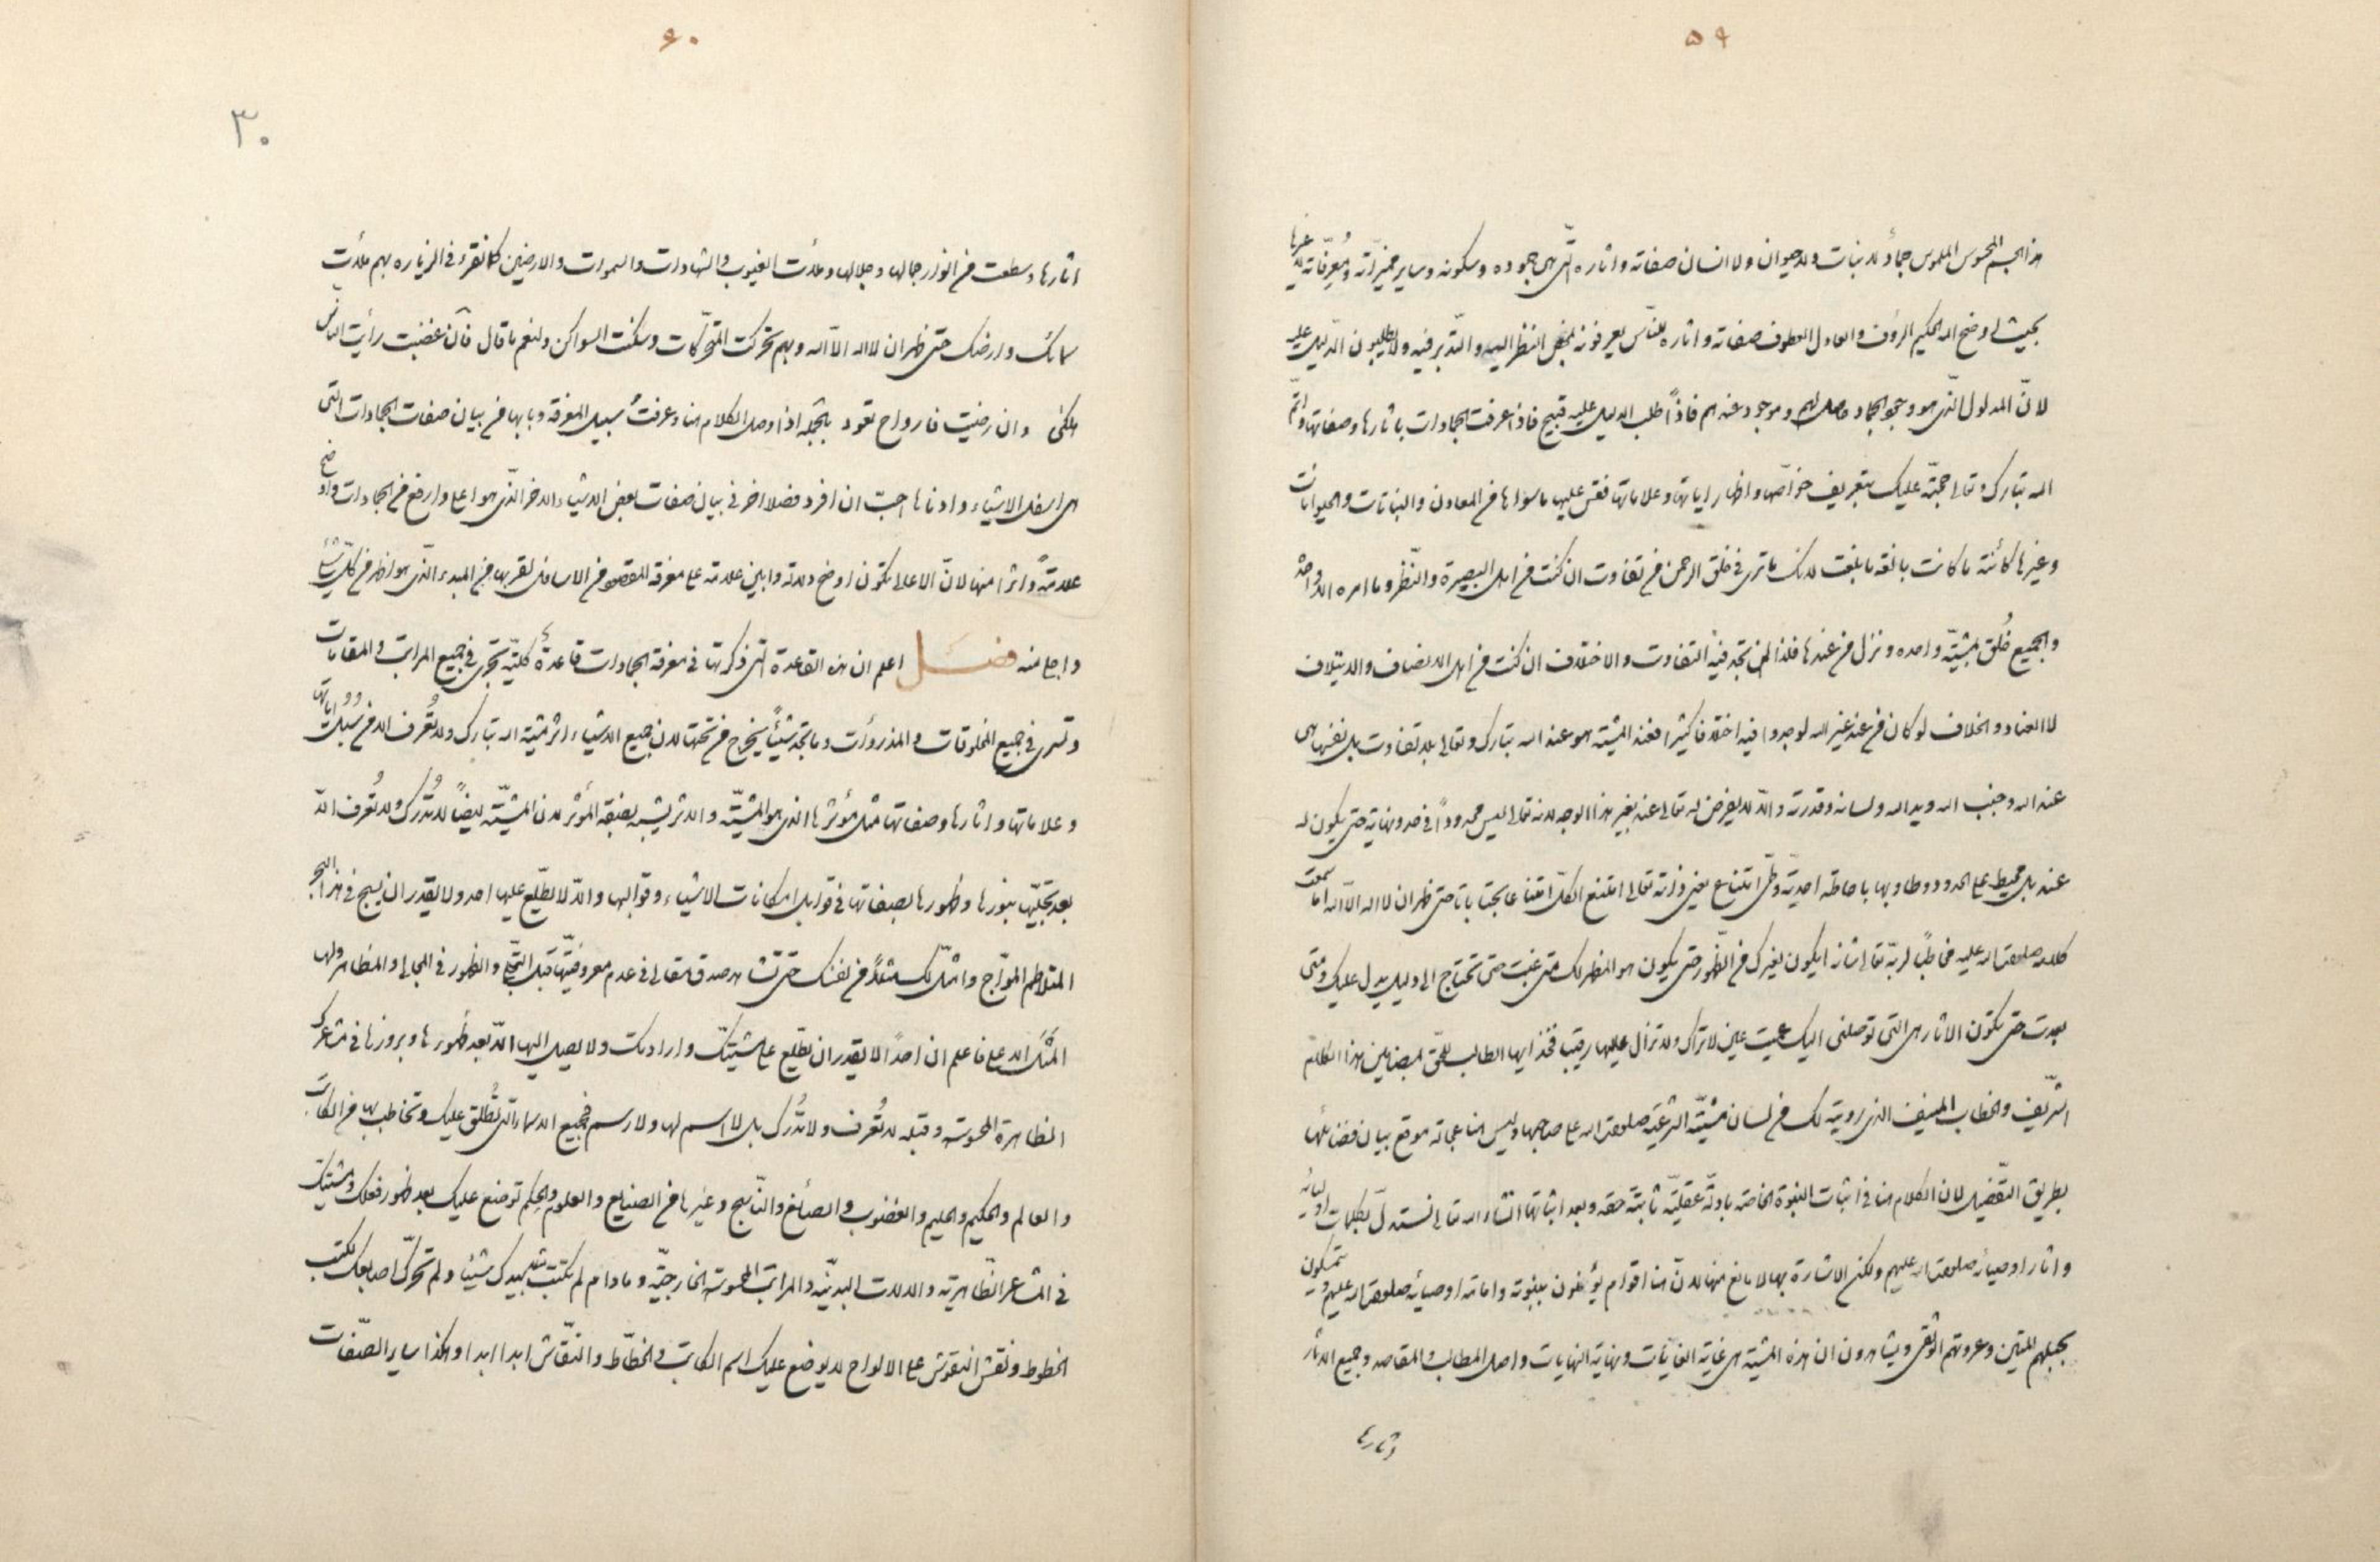 ۵۹
هذا الجسم المحسوس الملموس جمادٌ لا نبات ولا حيوان ولا انسان صفاته واثاره التّى هى جموده وسكونه وساير مميّزاته ومُعرِّفاته عن غيرها
بحيث اوضح الله الحكيم الرؤف والعادل العطوف صفاته واثاره للنّاس يعرفونه بمحض النظر اليه والتّدبر فيه ولا يطلبون الدّليل عليه
لانّ المدلول الذّى هو وجود الجماد حاصل لهم وموجود عندهم فاذاً طلب الدليل عليه قبيح فاذا عرفت الجمادات باثارها وصفاتها واتمّ
الله تبارك وتعالى حجّته عليك بتعريف خواصّها واظهار اياتها وعلاماتها فقس عليها ماسواها من المعادن والنباتات والحيوانات
وغيرها كائنة ما كانت بالغة ما بلغت لانك ما ترى فى خلق الرحمن من تفاوت ان كنت من اهل البصيرة والنّظر وما امره الا واحدة
والجميع خُلق بمشيّة واحده ونزل من عندها فلذا لن تجد فيه التفاوت والاختلاف ان كنت من اهل الانصاف والايتلاف
لا العناد والخلاف لو كان من عند غير الله لوجدوا فيه اختلافا كثيرا فعند المشية هو عند الله تبارك وتعالى بلا تفاوت بل نفسها هى
عند الله وجنب الله ويد الله ولسانه وقدرته والّا لا يفرض له تعالى عند بغير هذا الوجه لانه تعالى ليس محدوداً فى حد ونهاية حتى يكون له
عند بل محيط على الحدود وطاو بها باحاطة احديّة وطىّ امتناع يعنى ذاته تعالى امتنع الكلّ امتناعا بحتا باتا حتى ظهر ان لا اله الّا الله اما سمعت
كلامه صلوات الله عليه مخاطباً لربّه تعالى شانه ايكون لغيرك من الظّهور حتى يكون هو المظهر لك متى غبت حتى تحتاج الى دليل يدل عليك ومتى
بعدت حتى تكون الاثار هى التى توصلنى اليك عميت عين لا تراك ولا تزال عليها رقيب فخذ ايها الطالب للحقّ بمضامين هذا الكلام
الشّريف والخطاب المنيف الذى رويته لك من لسان مشيّته الشرعيّه صلوات الله على صاحبها وليس هنا عجالة موقع بيان فضائلها
بطريق التفّضيل لان الكلام هنا فى اثبات النبوّة الخاصّه بادلّة عقليّة ثابتة حقه وبعد اثباتها انشاء الله تعالى نستدلّ بكلمات اوليائه
واثار اوصيائه صلوات الله عليهم ولكن الاشارة بها لا مانع منها لانّ هنا اقوام يؤمنون بنبوته وامامته اوصيائه صلوات الله عليهم ويتمسكون
بحبلهم المتين وعروتهم الوثقى ويشاهدون ان هذه المشية هى غاية الغايات ونهاية النهايات واصل المطالب والمقاصد وجميع الاثار
اثارها
۶۰
۳۰
اثارها وسطعت من انوار جمالها وجلالها وملأت الغيوب والشهادات والسموات والارضين كما نقرء فى الزياره بهم ملأت
سمائك وارضك حتى ظهر ان لا اله الاّ الله وبهم تحركت المتحرّكات وسكنت السواكن ولنعم ما قال فآن غضبت رأيت الناس
هلكى وان رضيت فارواح تعود بالجمله اذا وصل الكلام هنا وعرفتَ سبيل المعرفة وبابها من بيان صفات الجمادات التى
هى اسفل الاشياء وادناها احبّ ان افرد فصلا اخر فى بيان صفات بعض الاشياء الاخر الذّى هو اعلى وارفع من الجمادات واوضح
علامةً واثرا منها لانّ الاعلى يكون اوضح دلالة وابين علامة على معرفة المقصود من الاسافل لقربها من المبدء الذّى هو اظهر من كلّ شئ
واجلى منه فصل اعلم ان هذه القاعدة التى ذكرتها فى معرفة الجمادات قاعدةٌ كليّة تجرى فى جميع المراتب والمقامات
وتسرى فى جميع المخلوقات والمذروأت وما تجد شيئاً يخرج من تحتها لان جميع الاشياء اثر مشية الله تبارك ولا تُعرف الا من سُبُل اياتها
وعلاماتها واثارها وصفاتها مثل مؤثرها الذى هو المشيّة والاثر يشبه بصفة المؤثر لان المشيّة ايضاً لا تُدرك ولا تُعرف الّا
بعد تجليّها بنورها وظهورها بصفاتها فى قوابل امكانات الاشياء وقوالبها والّا لا يطّلع عليها احد ولا يقدر ان يسبح فى هذا البحر
المتلاطم الموّاج وامثّل لك مثلاً من نفسك حتى تشاهد صدق مقالى فى عدم معروفيّتها قبل التجّلى والظهور فى المجالى والمظاهر ولها
المَثَل الاعلى فاعلم ان احداً لا يقدر ان يطّلع على مشيّتك وارادتك ولا يصل اليها الّا بعد ظهورها وبروزها فى مشاعرك
الظاهرة المحسوسه وقبله لا تُعرف ولا تُدرك بل لا اسم لها ولا رسم فجميع الاسماء التى تُطلق عليك وتخاطب بها من الكاتب
والعالم والحكيم والحليم والغضوب والصائغ والنّاسج وغيرها من الصنايع والعلوم والحِكم توضع عليك بعد ظهور فعلك ومشيتك
فى المشاعر الظّاهريّه والالات البدنيّه والمراتب المحسوسه الخارجيّة وما دام لم تكتب بيدك شيئا ولم تحرّك اصابعك لكتب
الخطوط ونقش النقوش على الالواح لا يوضع عليك اسم الكاتب والخطّاط والنقّاش ابدا ابدا وهكذا ساير الصّفات